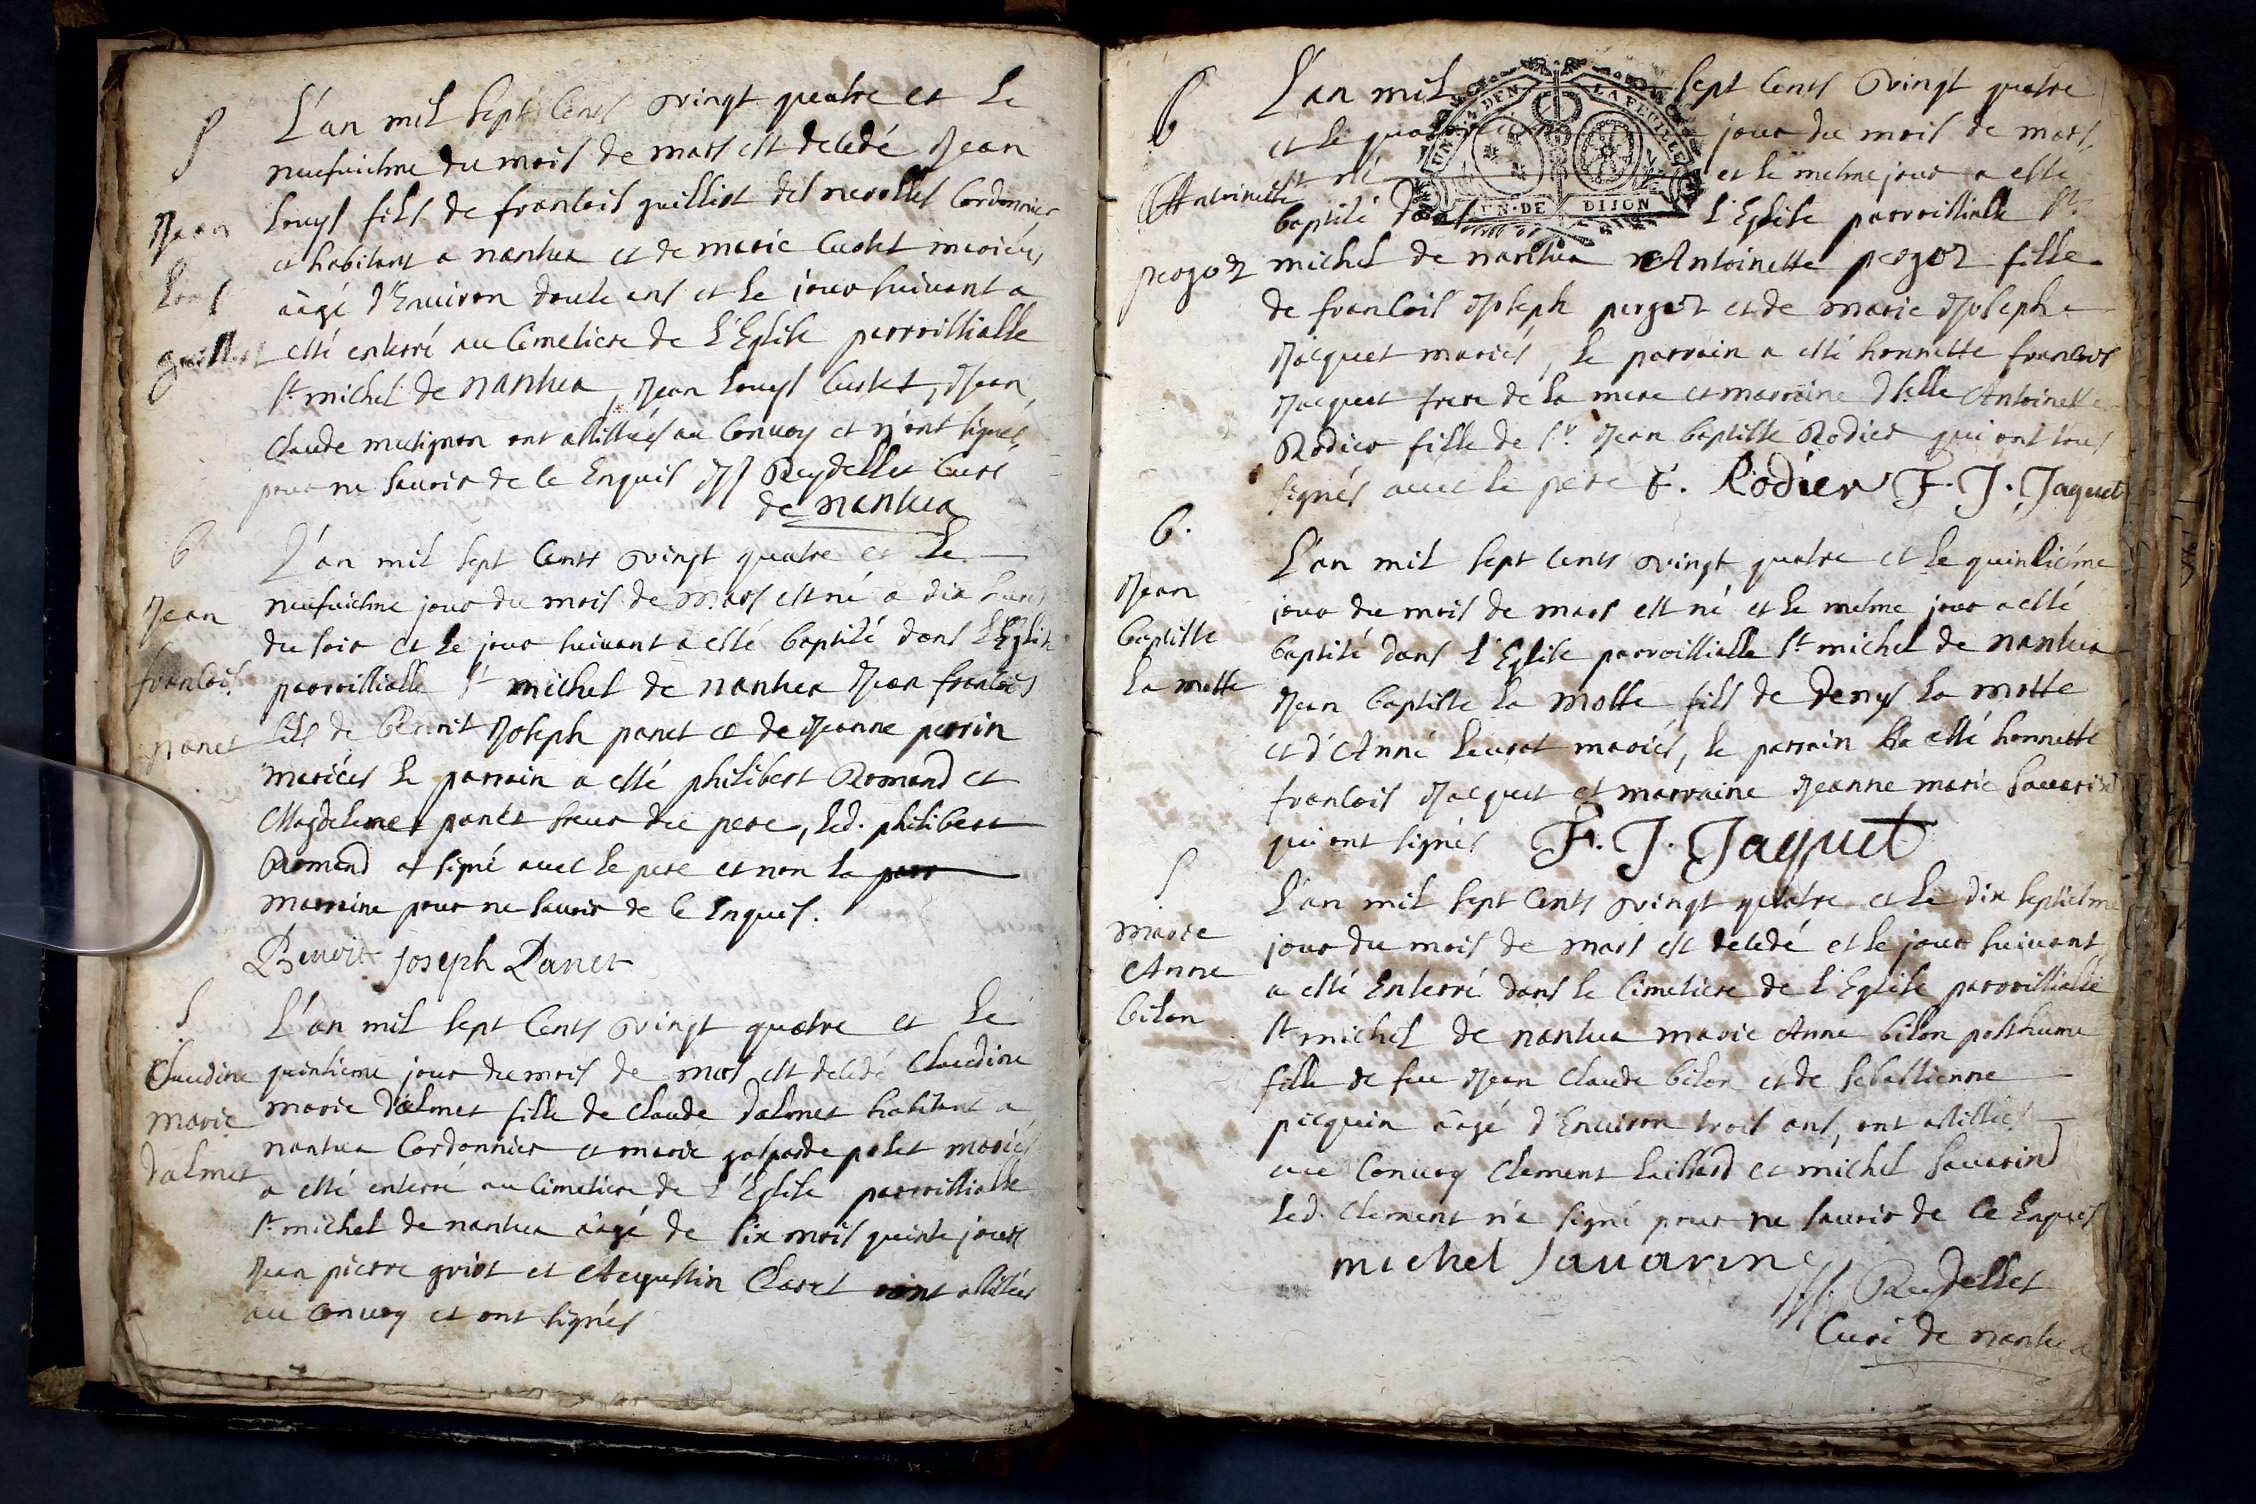 S
Jean
Louys
guilliot
L'an mil sept Cents vingt quatre et le
neufuiesme du mois de mars est decedé Jean
Louys fils de francois guilliot des nerolles Cordonnier
et habitant a nantua et de marie Custet mariés
aagé d'Enuiron douze ans et le jour suiuant a
esté enterré au Cimetiere de L'Eglise parroissialle
st michel de nantua, Jean Louys Custet, Jean
Claude mutignon ont assistués au Conuoy et n'ont signés
pour ne sauoir de ce Enquis Reydellet Curé
de nantua
b
Jean
francois
panet
L'an mil sept Cents vingt quatre et Le
neufuiesme jour du mois de mars est né a dix heures
du soir et le jour suiuant a esté baptisé dans L'Eglise
parroissialle st michel de nantua Jean francois
fils de benoit Joseph panet et de Jeanne perrin
mariées le parrain a esté philibert Romand et
Magdeleine panet sœur du pere, Led. philibert
Romand a signé auec le pere et non la parr
marraine pour ne sauoir de ce Enquis.
Benoit joseph Panet
S
Claudine
marie
dalmet
L'an mil sept Cents vingt quatre et Le
quinsieme jour du mois de mars est decedé Claudine
marie dalmet fille de claude dalmet habitant a
nantua Cordonnier et marie gasparde polet mariés
a esté enterré au Cimetiere de L'Eglise parroissialle
st michel de nantua aagé de six mois quinze jours
Jean pierre griot et Augustin Claret ont assistués
au Conuoy et ont signés
b
Antoinette
pergoz
L'an mil sept Cents vingt quatre
et le jour du mois de mars
est né et le mesme jour a esté
baptisé dans L'Eglise parroissialle st
michel de nantua Antoinette pergoz fille
de francois Joseph pergoz et de marie Josephe
Jacquet mariés, le parrain a esté honnette francois
Jacquet frere de la mere et marraine dselle Antoinette
Rodier fille de sr Jean baptiste Rodier qui ont tous
signés auec le pere F. Rodier F. J. Jaquet
b.
Jean
baptiste
La motte
L'an mil sept Cents vingt quatre et le quinsiéme
jour du mois de mars est né et le méme jour a esté
baptisé dans L'Eglise parroissialle st michel de nantua
Jean baptiste La Motte fils de denys La motte
et d'Anne Leurat mariés, le parrain a esté honnette
francois Jacquet et marraine Jeanne marie Sauarind
qui ont signés F. J. Jaquet
S
marie
Anne
bilon
L'an mil sept Cents vingt quatre et Le dix septiesme
jour du mois de mars est decedé et le jour suiuant
a esté Enterré dans le Cimetiere de L'Eglise parroissialle
st michel de nantua marie Anne bilon posthume
fille de feu Jean Claude bilon et de sebastienne
picquin aagé d'Enuiron trois ans, ont assistués
au Conuoy Clement Laillard et michel Sauarind
Led. Clement n'a signé pour ne sauoir de ce Enquis
michel Sauarin
Reydellet
Curé de nantua
UN. DEN
LA FEUILLE
UN. DE DIJON